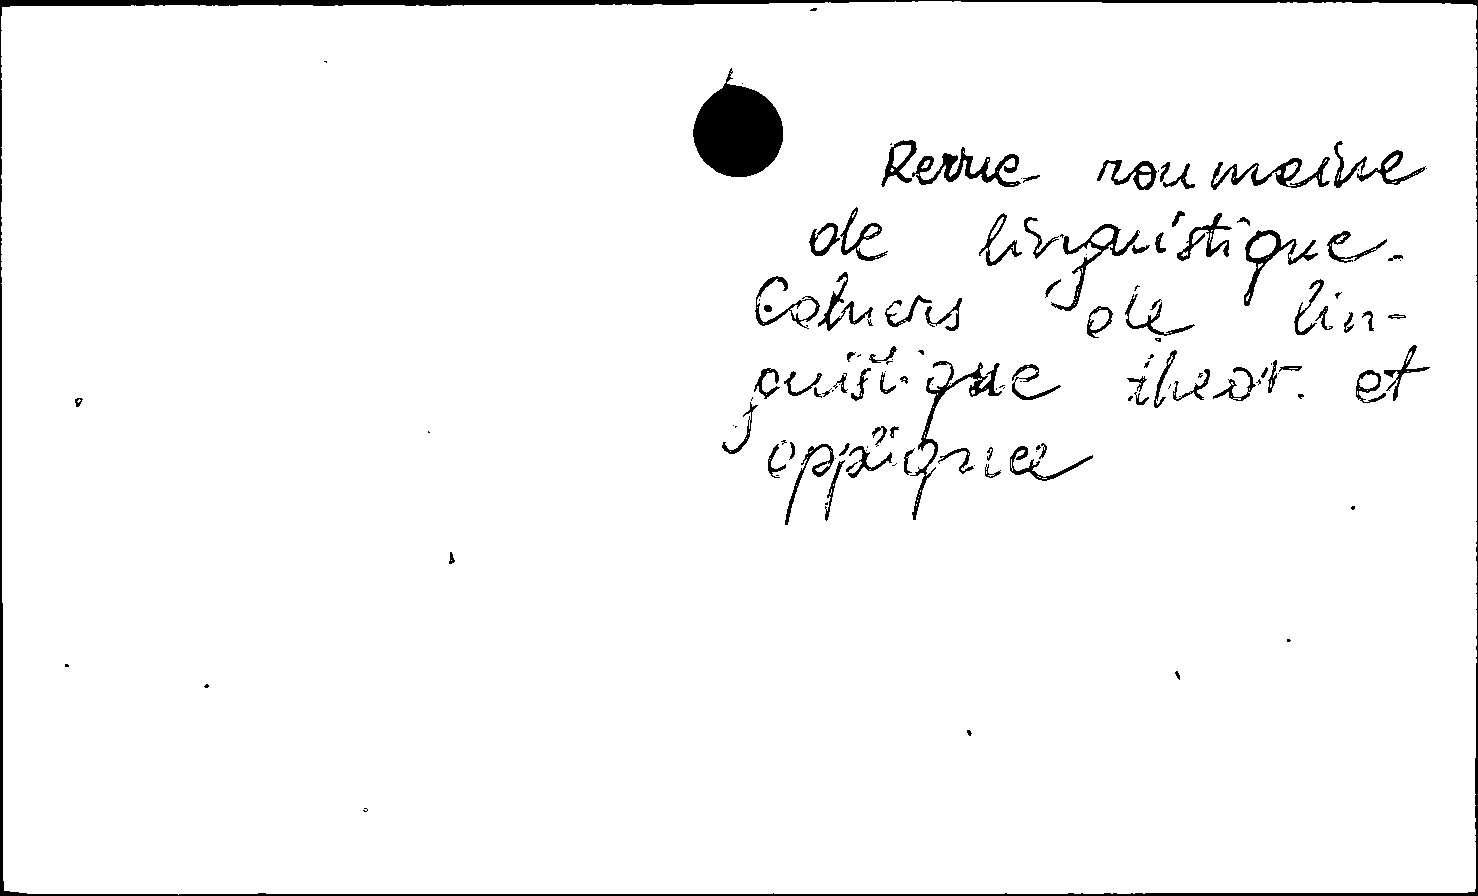 Revue roumaine
de linguistique.
Cahiers de lin-
guistique theor. et
appliquee